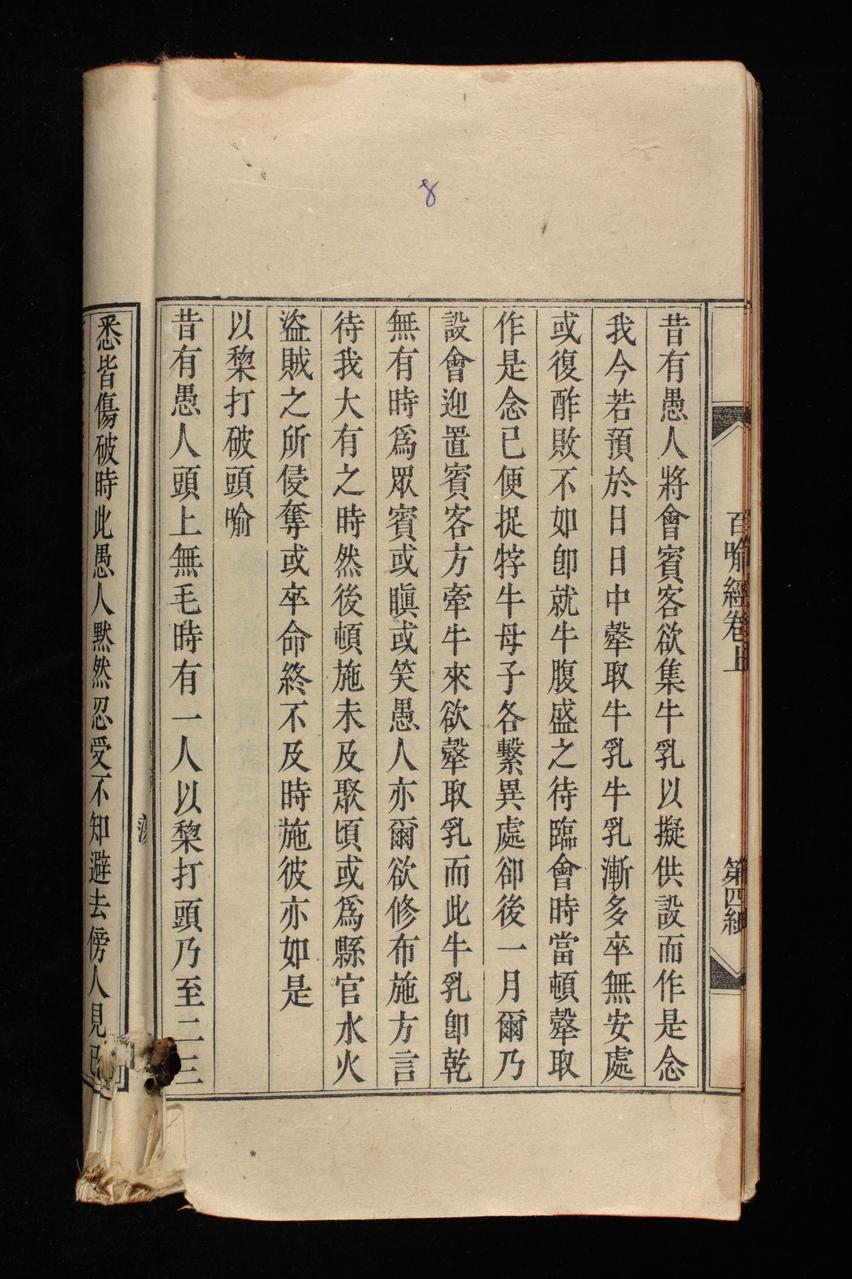 8
百喻經卷上
第四紙
昔有愚人將會賓客欲集牛乳以擬供設而作是念
我今若預於日日中𤛗取牛乳牛乳漸多卒無安處
或復酢敗不如卽就牛腹盛之待臨會時當頓𤛗取
作是念已便捉牸牛母子各繫異處卻後一月爾乃
設會迎置賓客方牽牛來欲𤛗取乳而此牛乳卽乾
無有時爲眾賓或瞋或笑愚人亦爾欲修布施方言
待我大有之時然後頓施未及聚頃或爲縣官水火
盜賊之所侵奪或卒命終不及時施彼亦如是
以棃打破頭喻
昔有愚人頭上無毛時有一人以棃打頭乃至二三
悉皆傷破時此愚人黙然忍受不知避去傍人見